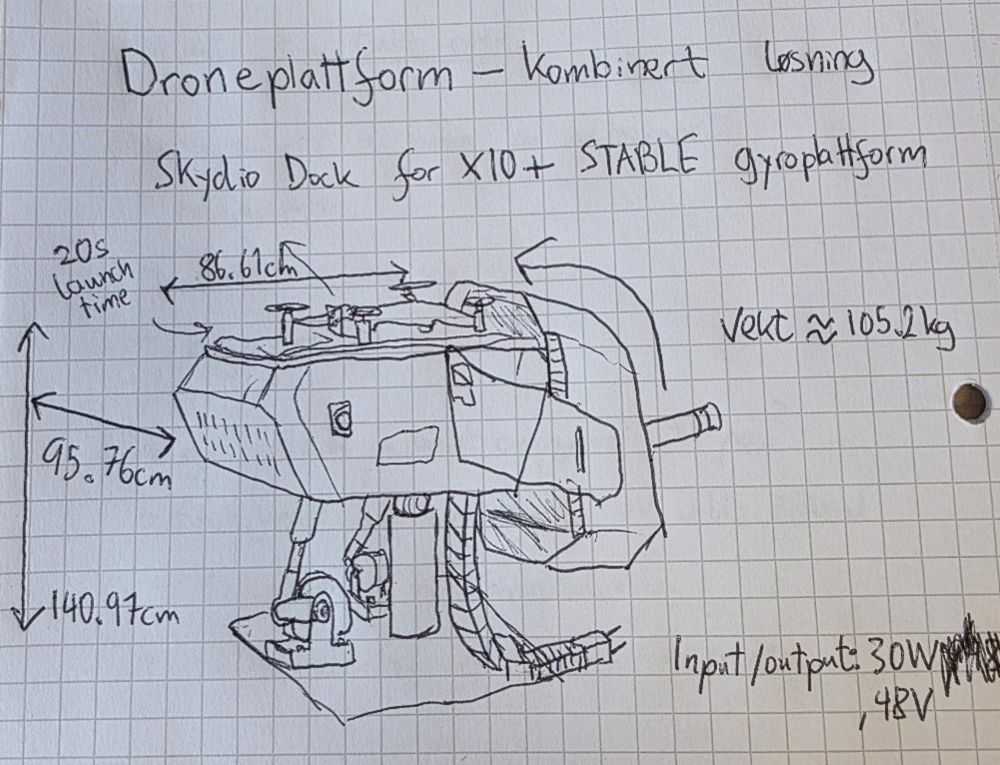 Droneplattform – Kombinert løsning
Skydio Dock for X10 + STABLE gyroplattform
20s
launch
time
86.61cm
Vekt ≈ 105.2kg
95.76cm
140.97cm
Input/output: 30W
, 48V